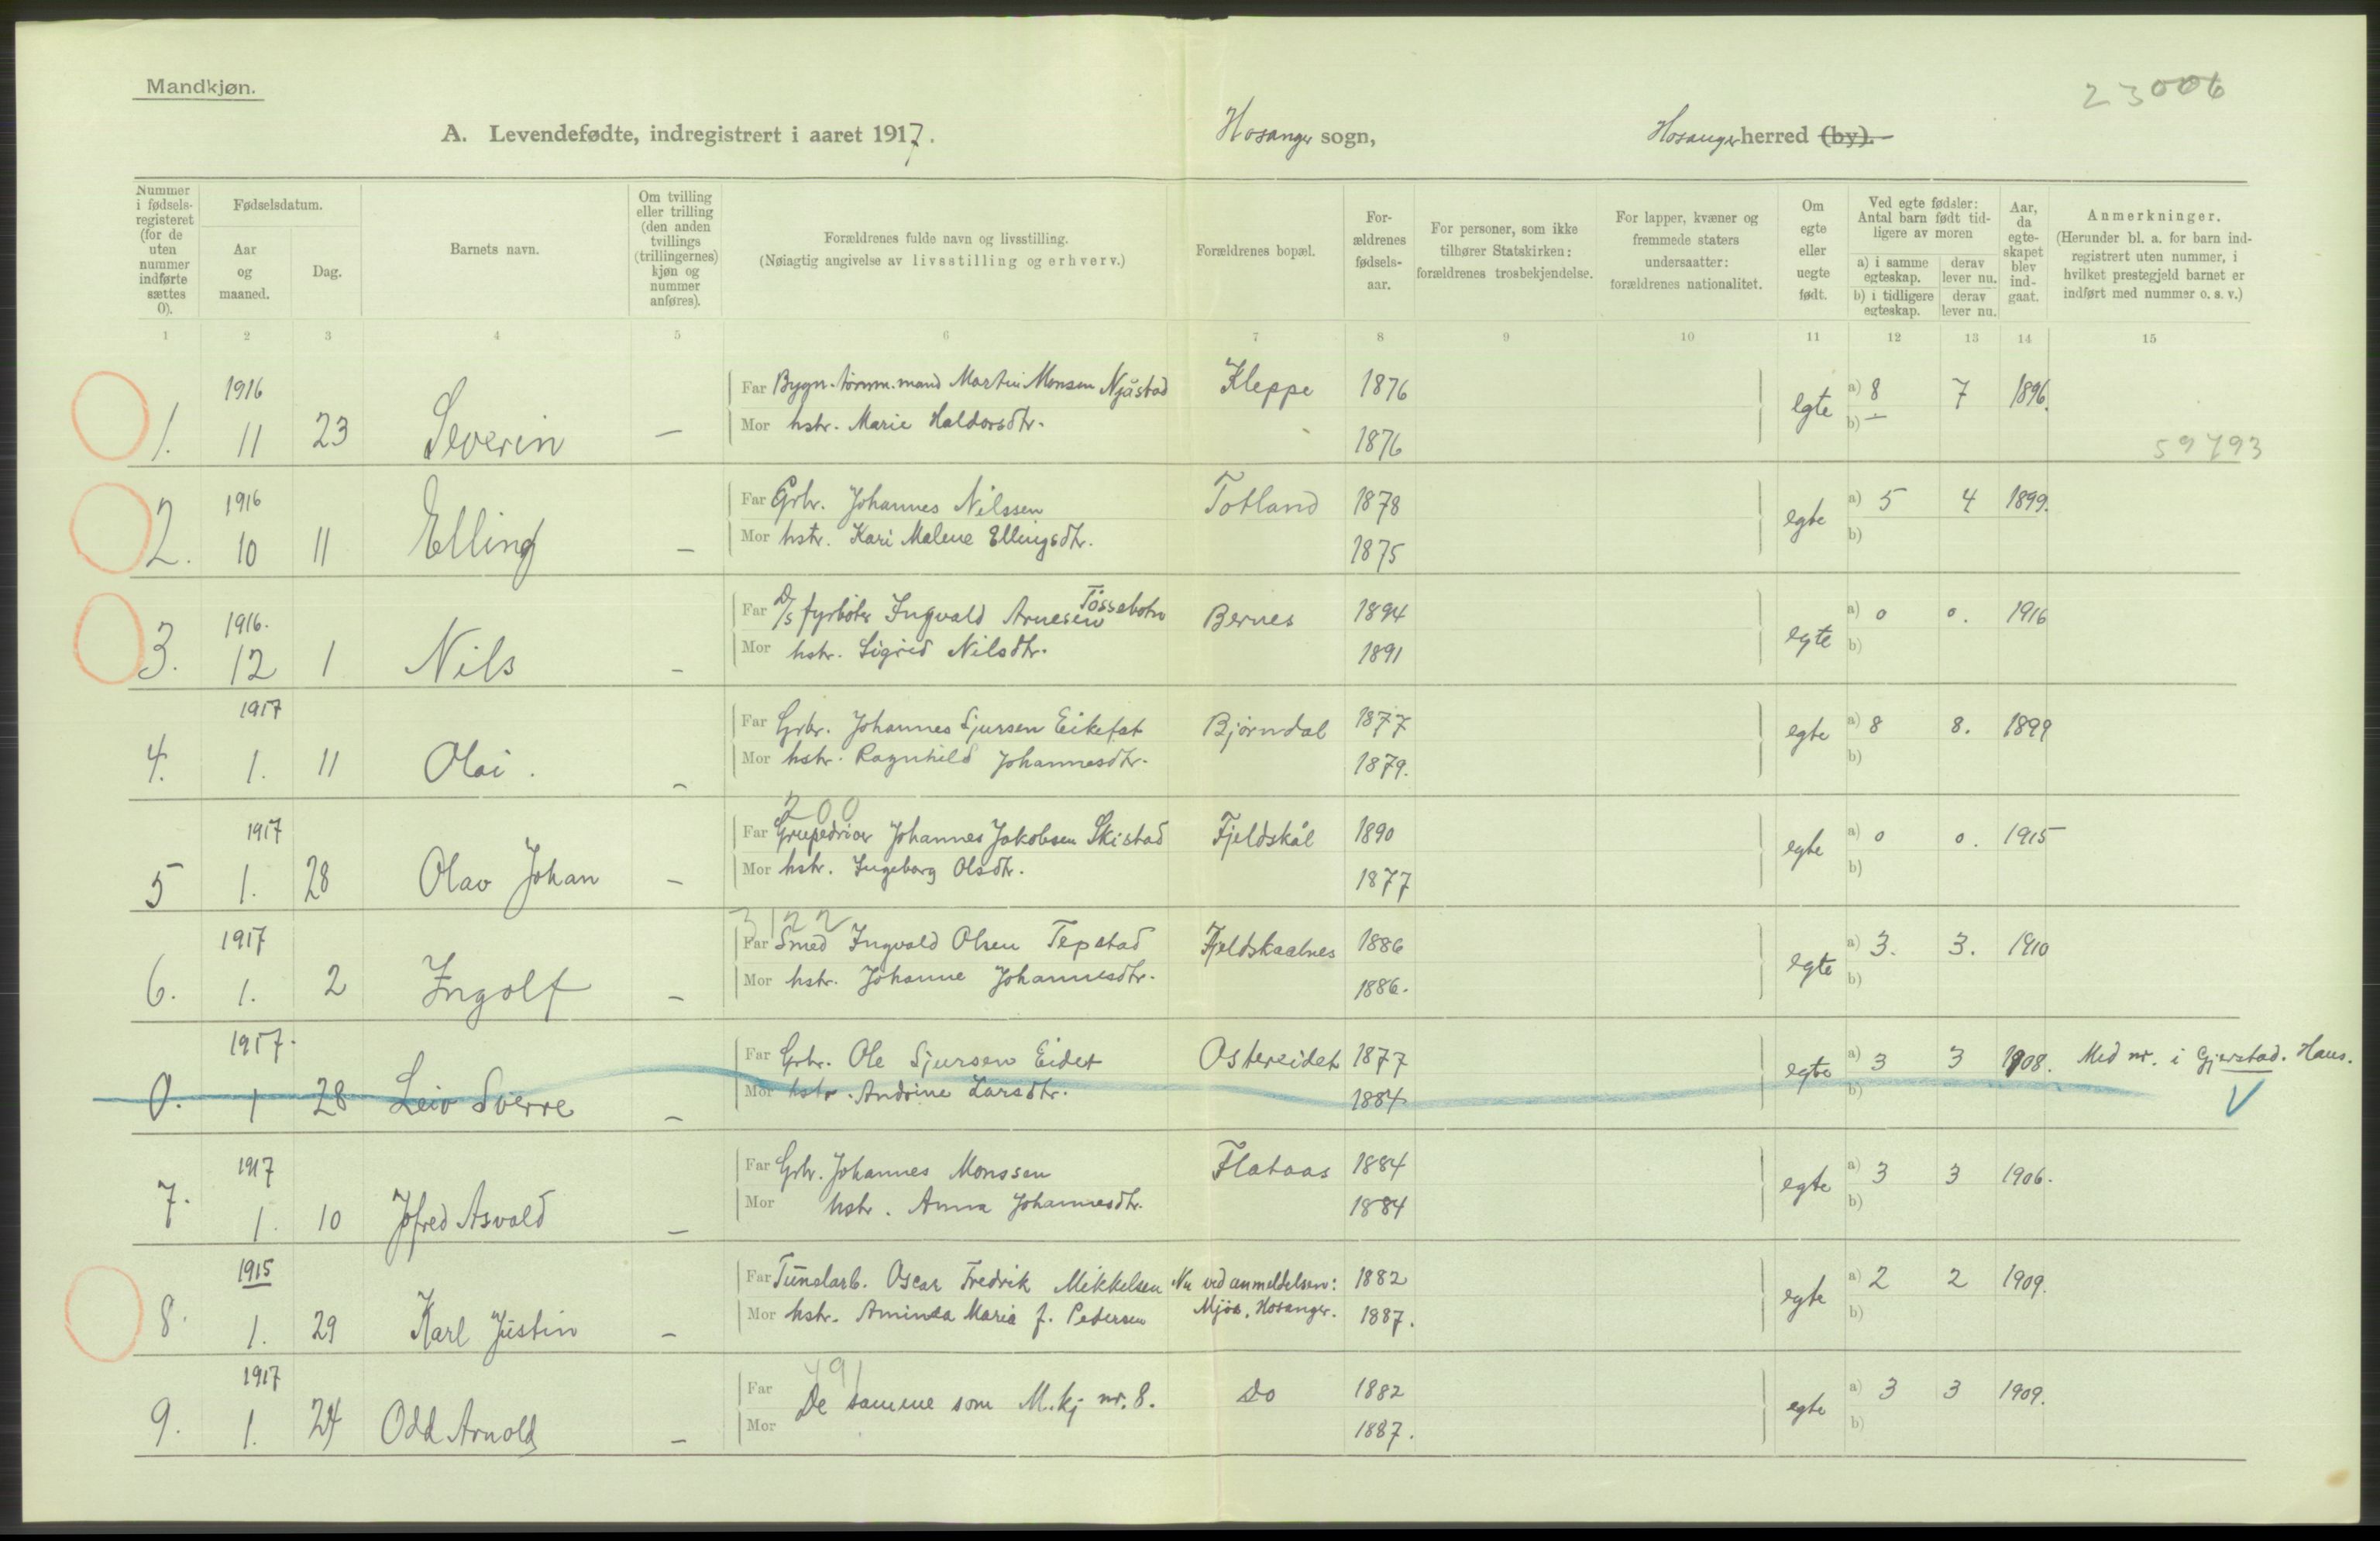 Mandkjøn.
23006
A. Levendefødte, indregistrert i aaret 1917. Hosanger sogn, Hosanger herred (by).
Nummer i fødsels-registeret (for de uten nummer indførte sættes 0).
Fødselsdatum.
Aar og maaned.
Dag.
Barnets navn.
Om tvilling eller trilling (den anden tvillings (trillingernes) kjøn og nummer anføres).
Forældrenes fulde navn og livsstilling.
(Nøiagtig angivelse av livsstilling og erhverv.)
Forældrenes bopæl.
For-ældrenes fødsels-aar.
For personer, som ikke tilhører Statskirken: forældrenes trosbekjendelse.
For lapper, kvæner og fremmede staters undersaatter: forældrenes nationalitet.
Om egte eller uegte født.
Ved egte fødsler: Antal barn født tid-ligere av moren
a) i samme egteskap. derav lever nu.
b) i tidligere egteskap. derav lever nu.
Aar, da egte-skapet blev ind-gaat.
Anmerkninger.
(Herunder bl. a. for barn ind-registrert uten nummer, i hvilket prestegjeld barnet er indført med nummer o. s. v.)
1 2 3 4 5 6 7 8 9 10 11 12 13 14 15
1. 1916 11 23 Severin —
Far Bygn. tømm. mand Martin Monsen Njåstad Kleppe 1876 egte a) 8 7 1896.
Mor hstr. Marie Haldorsdtr. 1876 b) —
59793
2. 1916 10 11 Elling —
Far Grbr. Johannes Nilssen Totland 1878 egte a) 5 4 1899.
Mor hstr. Kari Malene Ellingsdtr. 1875 b)
3. 1916. 12 1 Nils —
Far D/s fyrbøter Ingvald Arnesen Tössebotn Bernes 1894 egte a) 0 0. 1916
Mor hstr. Sigrid Nilsdtr. 1891 b)
4. 1917 1. 11 Olai. —
Far Grbr. Johannes Sjursen Eikefet Bjørndal 1877 egte a) 8 8. 1899
Mor hstr. Ragnhild Johannesdtr. 1879. b)
200
5 1917 1. 28 Olav Johan —
Far Johannes Jakobsen Skistad Fjeldskål 1890 egte a) 0 0. 1915
Mor hstr. Ingeborg Olsdtr. 1877 b)
3122
6. 1917 1. 2 Ingolf —
Far Smed Ingvald Olsen Tepstad Fjeldskaalnes 1886 egte a) 3. 3. 1910
Mor hstr. Johanne Johannesdtr. 1886. b)
0. 1917. 1 28 Leiv Sverre —
Far Grbr. Ole Sjursen Eidet Ostereidet 1877 egte a) 3 3 1908. Med nr. i Gjerstad. Haus.
Mor hstr. Andrine Larsdtr. 1884 b)
7. 1917 1. 10 Jofred Asvald —
Far Grbr. Johannes Monssen Flataas 1884 egte a) 3 3 1906.
Mor hstr. Anna Johannesdtr. 1884 b)
8. 1915 1. 29 Karl Justin —
Far Tunelarb. Oscar Fredrik Mikkelsen Nu ved anmeldelsen: 1882 egte a) 2 2 1909.
Mor hstr. Aminda Maria f. Pedersen Mjøs, Hosanger. 1887. b)
491
9. 1917 1. 24 Odd Arnold —
Far Mor De samme som M.kj nr. 8. Do 1882 egte a) 3 3 1909.
1887. b)